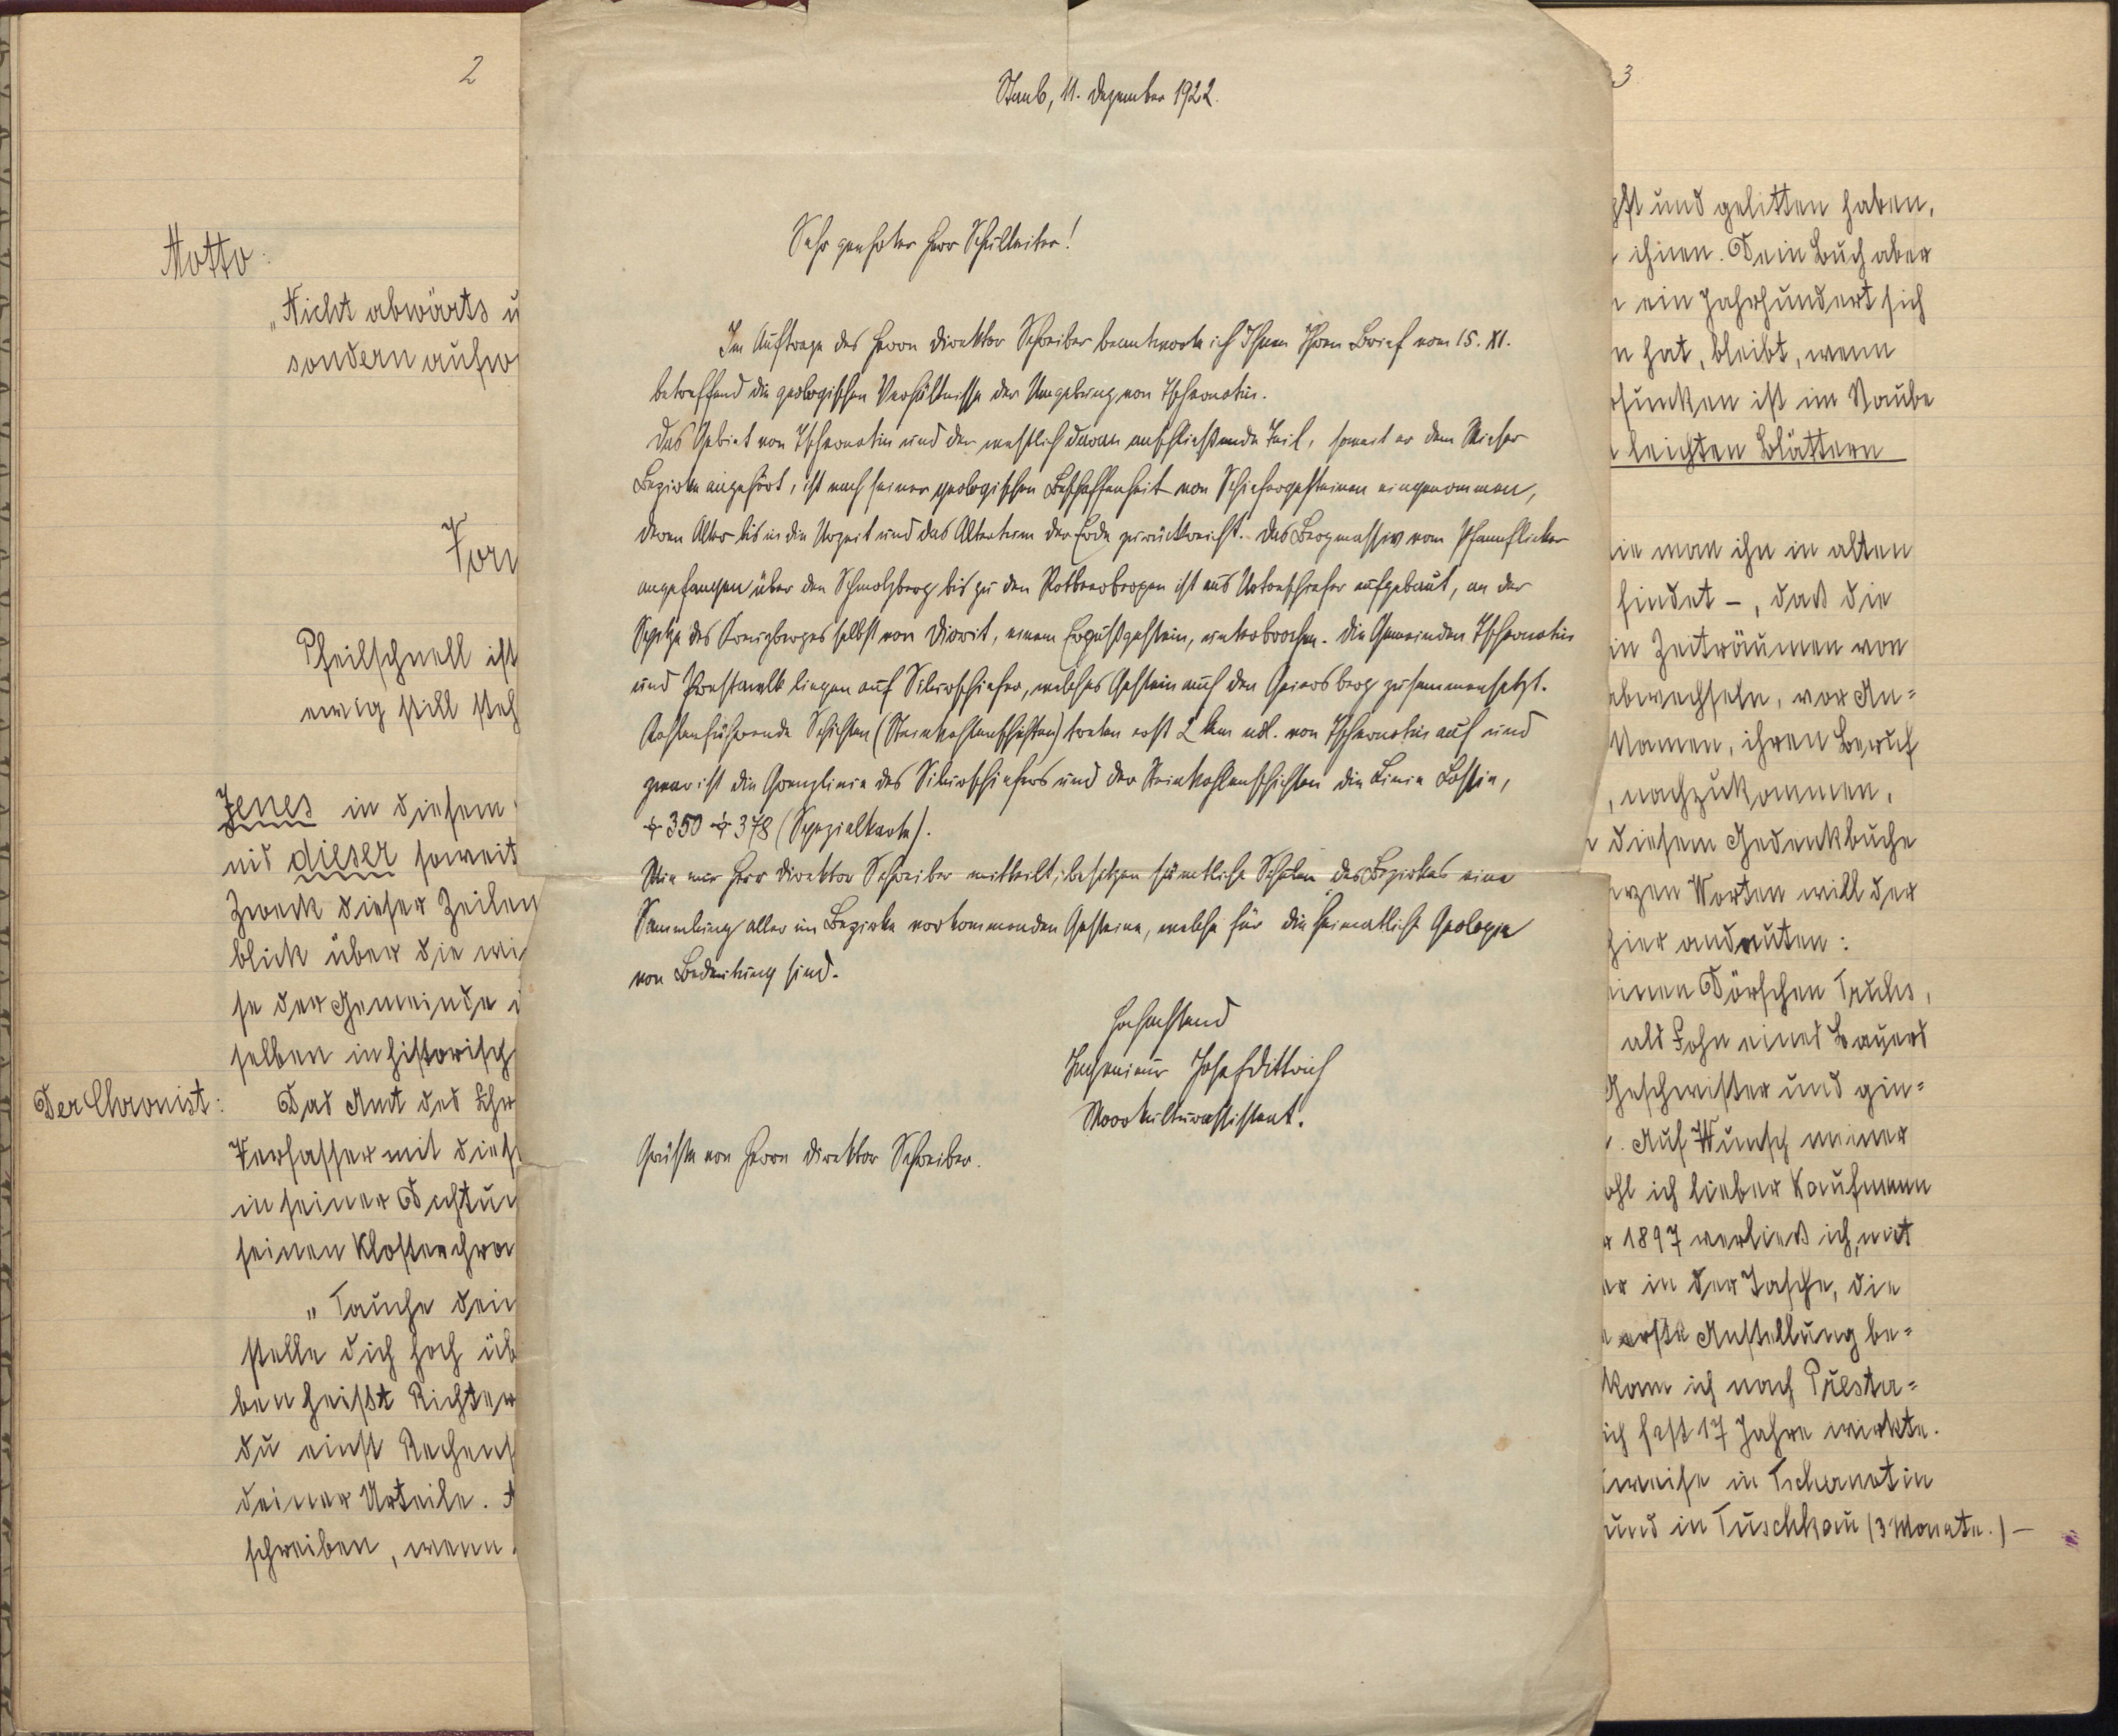 2
Motto:
„Nicht abwärts u
sondern aufw
Vor
Pfeilschnell ist
ewig still steh
Jenes in diesem
nid dieser soweit
Zweck dieser Zeilen
blick über die wi
se der Gemeinde
selben in historisch
Der Chronist: Das Amt des Chr
Verfasser mit dies
in seiner Dichtun
seinen Klosterchro
„Tauche dein
stelle dich hoch üb
ben heißt Richter
du einst Rechens
deiner Urteile.
schreiben, wenn
Staab, 11. Dezember 1922.
Sehr geehrter Herr Schulleiter!
Im Auftrage des Herrn Direktor Schreiber beantworte ich Ihnen Ihren Brief vom 15. XI.
betreffend die geologischen Verhältnisse der Umgebung von Tschernotin.
Das Gebiet von Tschernotin und der westlich daran anschließende Teil, soweit er dem Mieser
Bezirke angehört, ist nach seiner geologischen Beschaffenheit von Schiefergesteinen eingenommen,
deren Alter bis in die Urzeit und das Altertum der Erde zurückreicht. Das Bergmassiv vom Pfannflicker
angefangen über den Schmolzberg bis zu den Rotbeerbergen ist aus Urtonschiefer aufgebaut, an der
Spitze des Kreuzberges selbst von Diorit, einem Ergußgestein, unterbrochen. Die Gemeinden Tschernotin
und Prestawlk liegen auf Silurschiefer, welches Gestein auch den Geiersberg zusammensetzt.
Kohlenführende Schichten (Steinkohlenschichten) treten erst 2 km ndl. von Tschernotin auf und
zwar ist die Grenzlinie des Silurschiefers und der Steinkohlenschichten die Linie Lossin,
350 378 (Spezialkarte).
Wie mir Herr Direktor Schreiber mitteilt, besitzen sämtliche Schulen des Bezirkes eine
Sammlung aller im Bezirke vorkommenden Gesteine, welche für die heimatliche Geologie
von Bedeutung sind.
Hochachtend
Ingenieur Josef Dittrich
Moorkulturassistent.
Grüße von Herrn Direktor Schreiber.
3
pft und gelitten haben,
ihnen. Dein Buch aber
ein Jahrhundert sich
n hat, bleibt, wenn
sunken ist im Staube
leichten Blättern
ie man ihn in alten
findet -, daß die
in Zeiträumen von
abwechseln, vor An=
Namen, ihren Beruf
, nachzukommen,
diesem Gedenkbuche
rzen Worten will der
hier andeuten:
inen Dörfchen Tuchs,
als Sohn eines Bauers
Geschwister und gin=
. Auf Wunsch meiner
ohl ich lieber Kaufmann
r 1897 verließ ich, mit
er in der Tasche, die
erste Anstellung be=
kam ich nach Presta=
ich fast 17 Jahre wirkte.
weise in Tschernotin
und in Tuschkau (3 Monate.) —